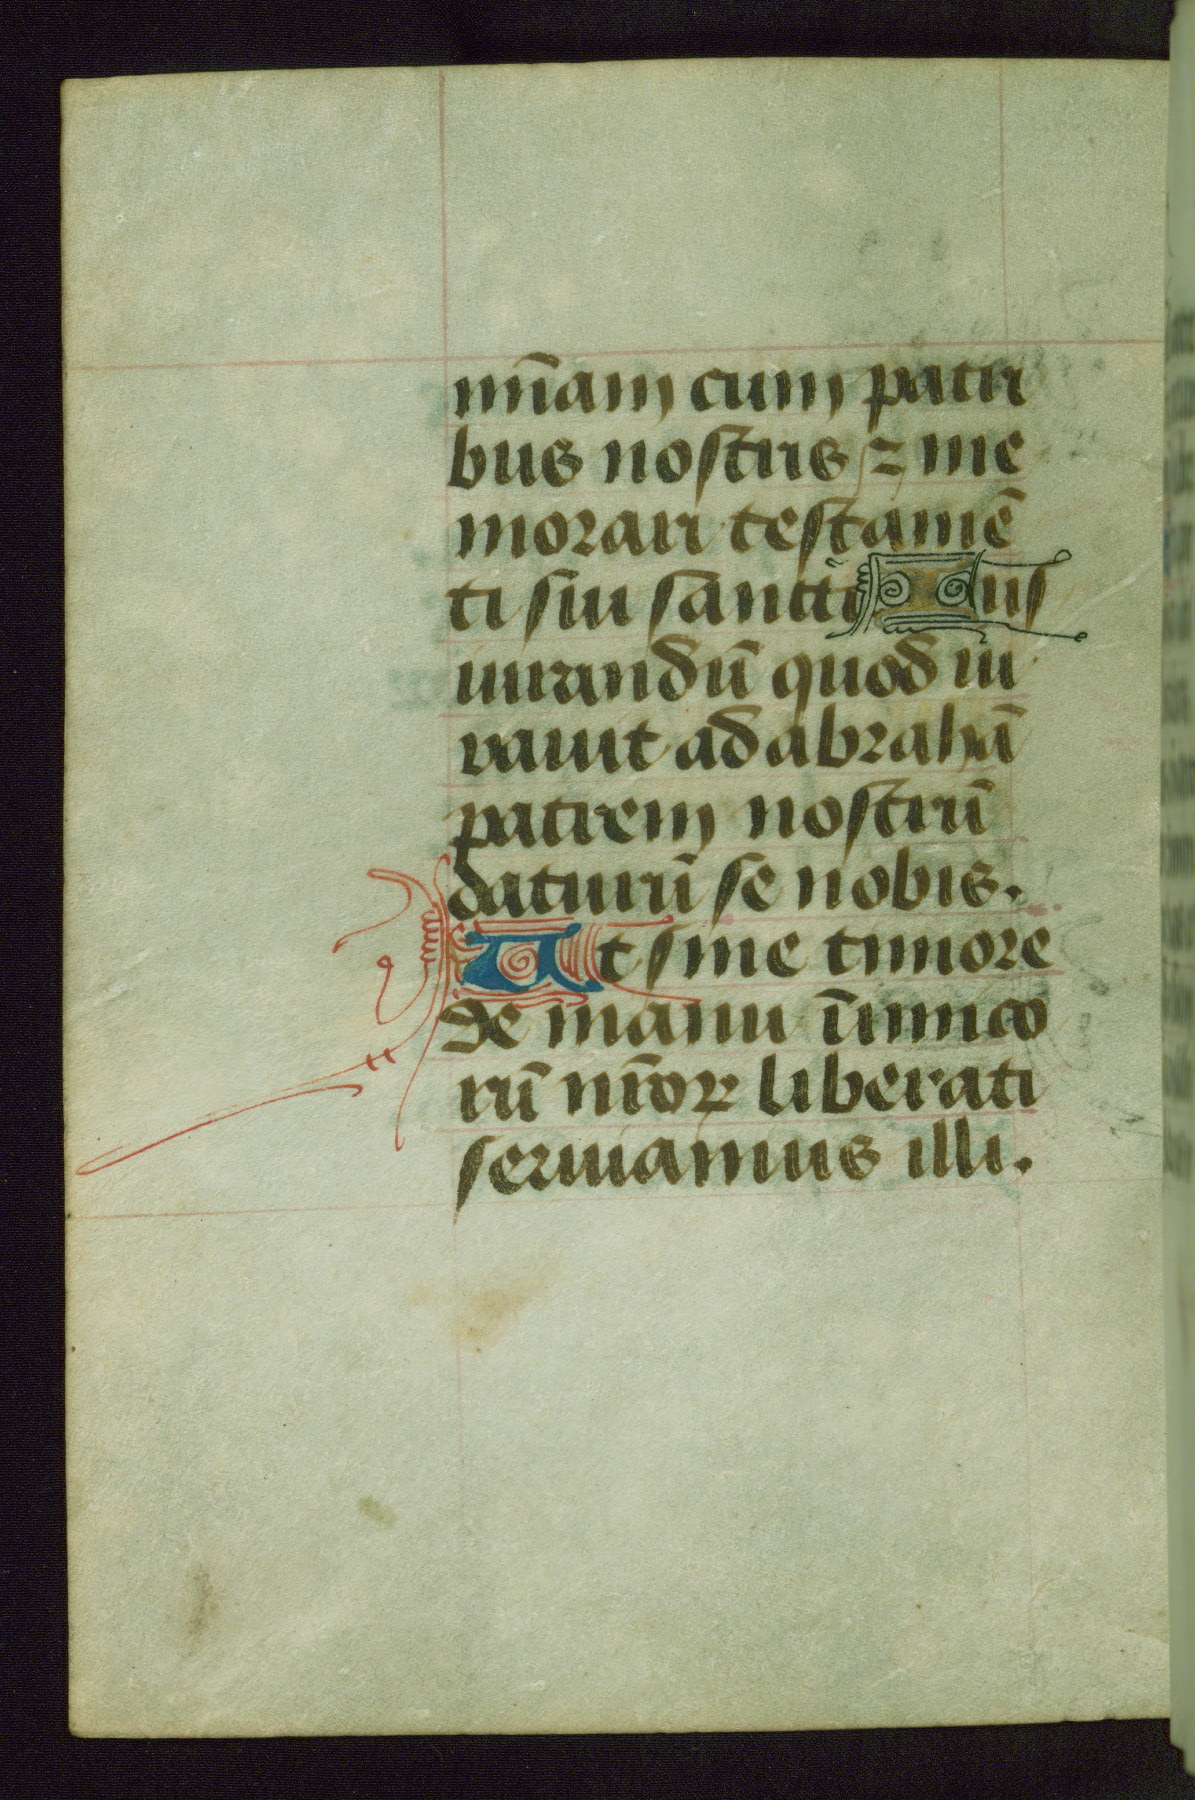 mīam cum patri
bus nostris ⁊ me
morari testamē
ti sui sancti Ius
iurandū quod iu
rauit ad abrahā
patrem nostrū
daturū se nobis.
Ut sine timore
de manu inimico
rū nrōꝝ liberati
seruiamus illi.